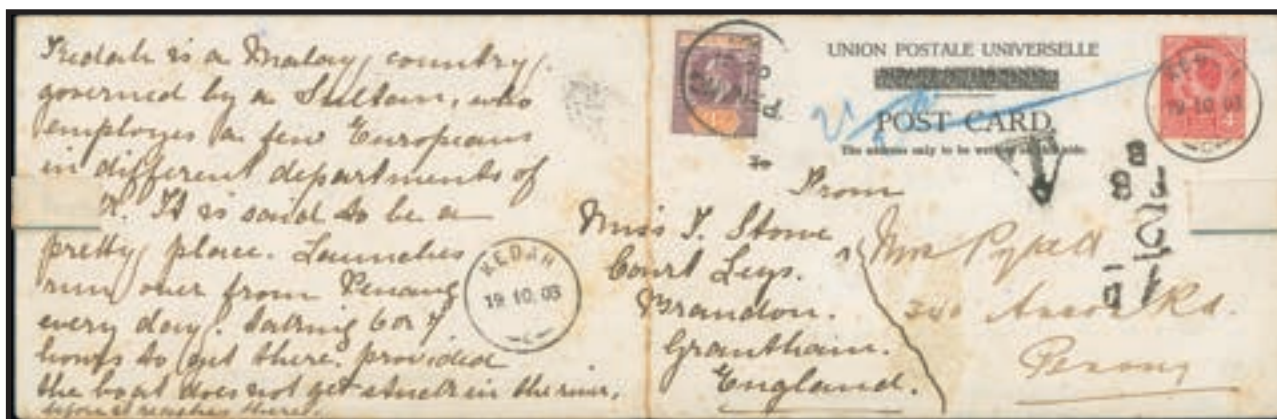 Kedah is a Malay country.
governed by a Sultan, who
employes a few Europeans
in different departments of
It is said to be a
pretty place. Launches
run over from Penang
every day. taking 6 or 7
hours to get there. provided
the boat does not get stuck in the river,
before it reaches there.
KEDAH
19.10.03
UNION POSTALE UNIVERSELLE
POST CARD.
The address only to be written on this side.
From
Miss T. Stowe
Court Leys.
Brandon.
Grantham.
England.
Mrs
Anson Rd.
Penang
19.10.03
T